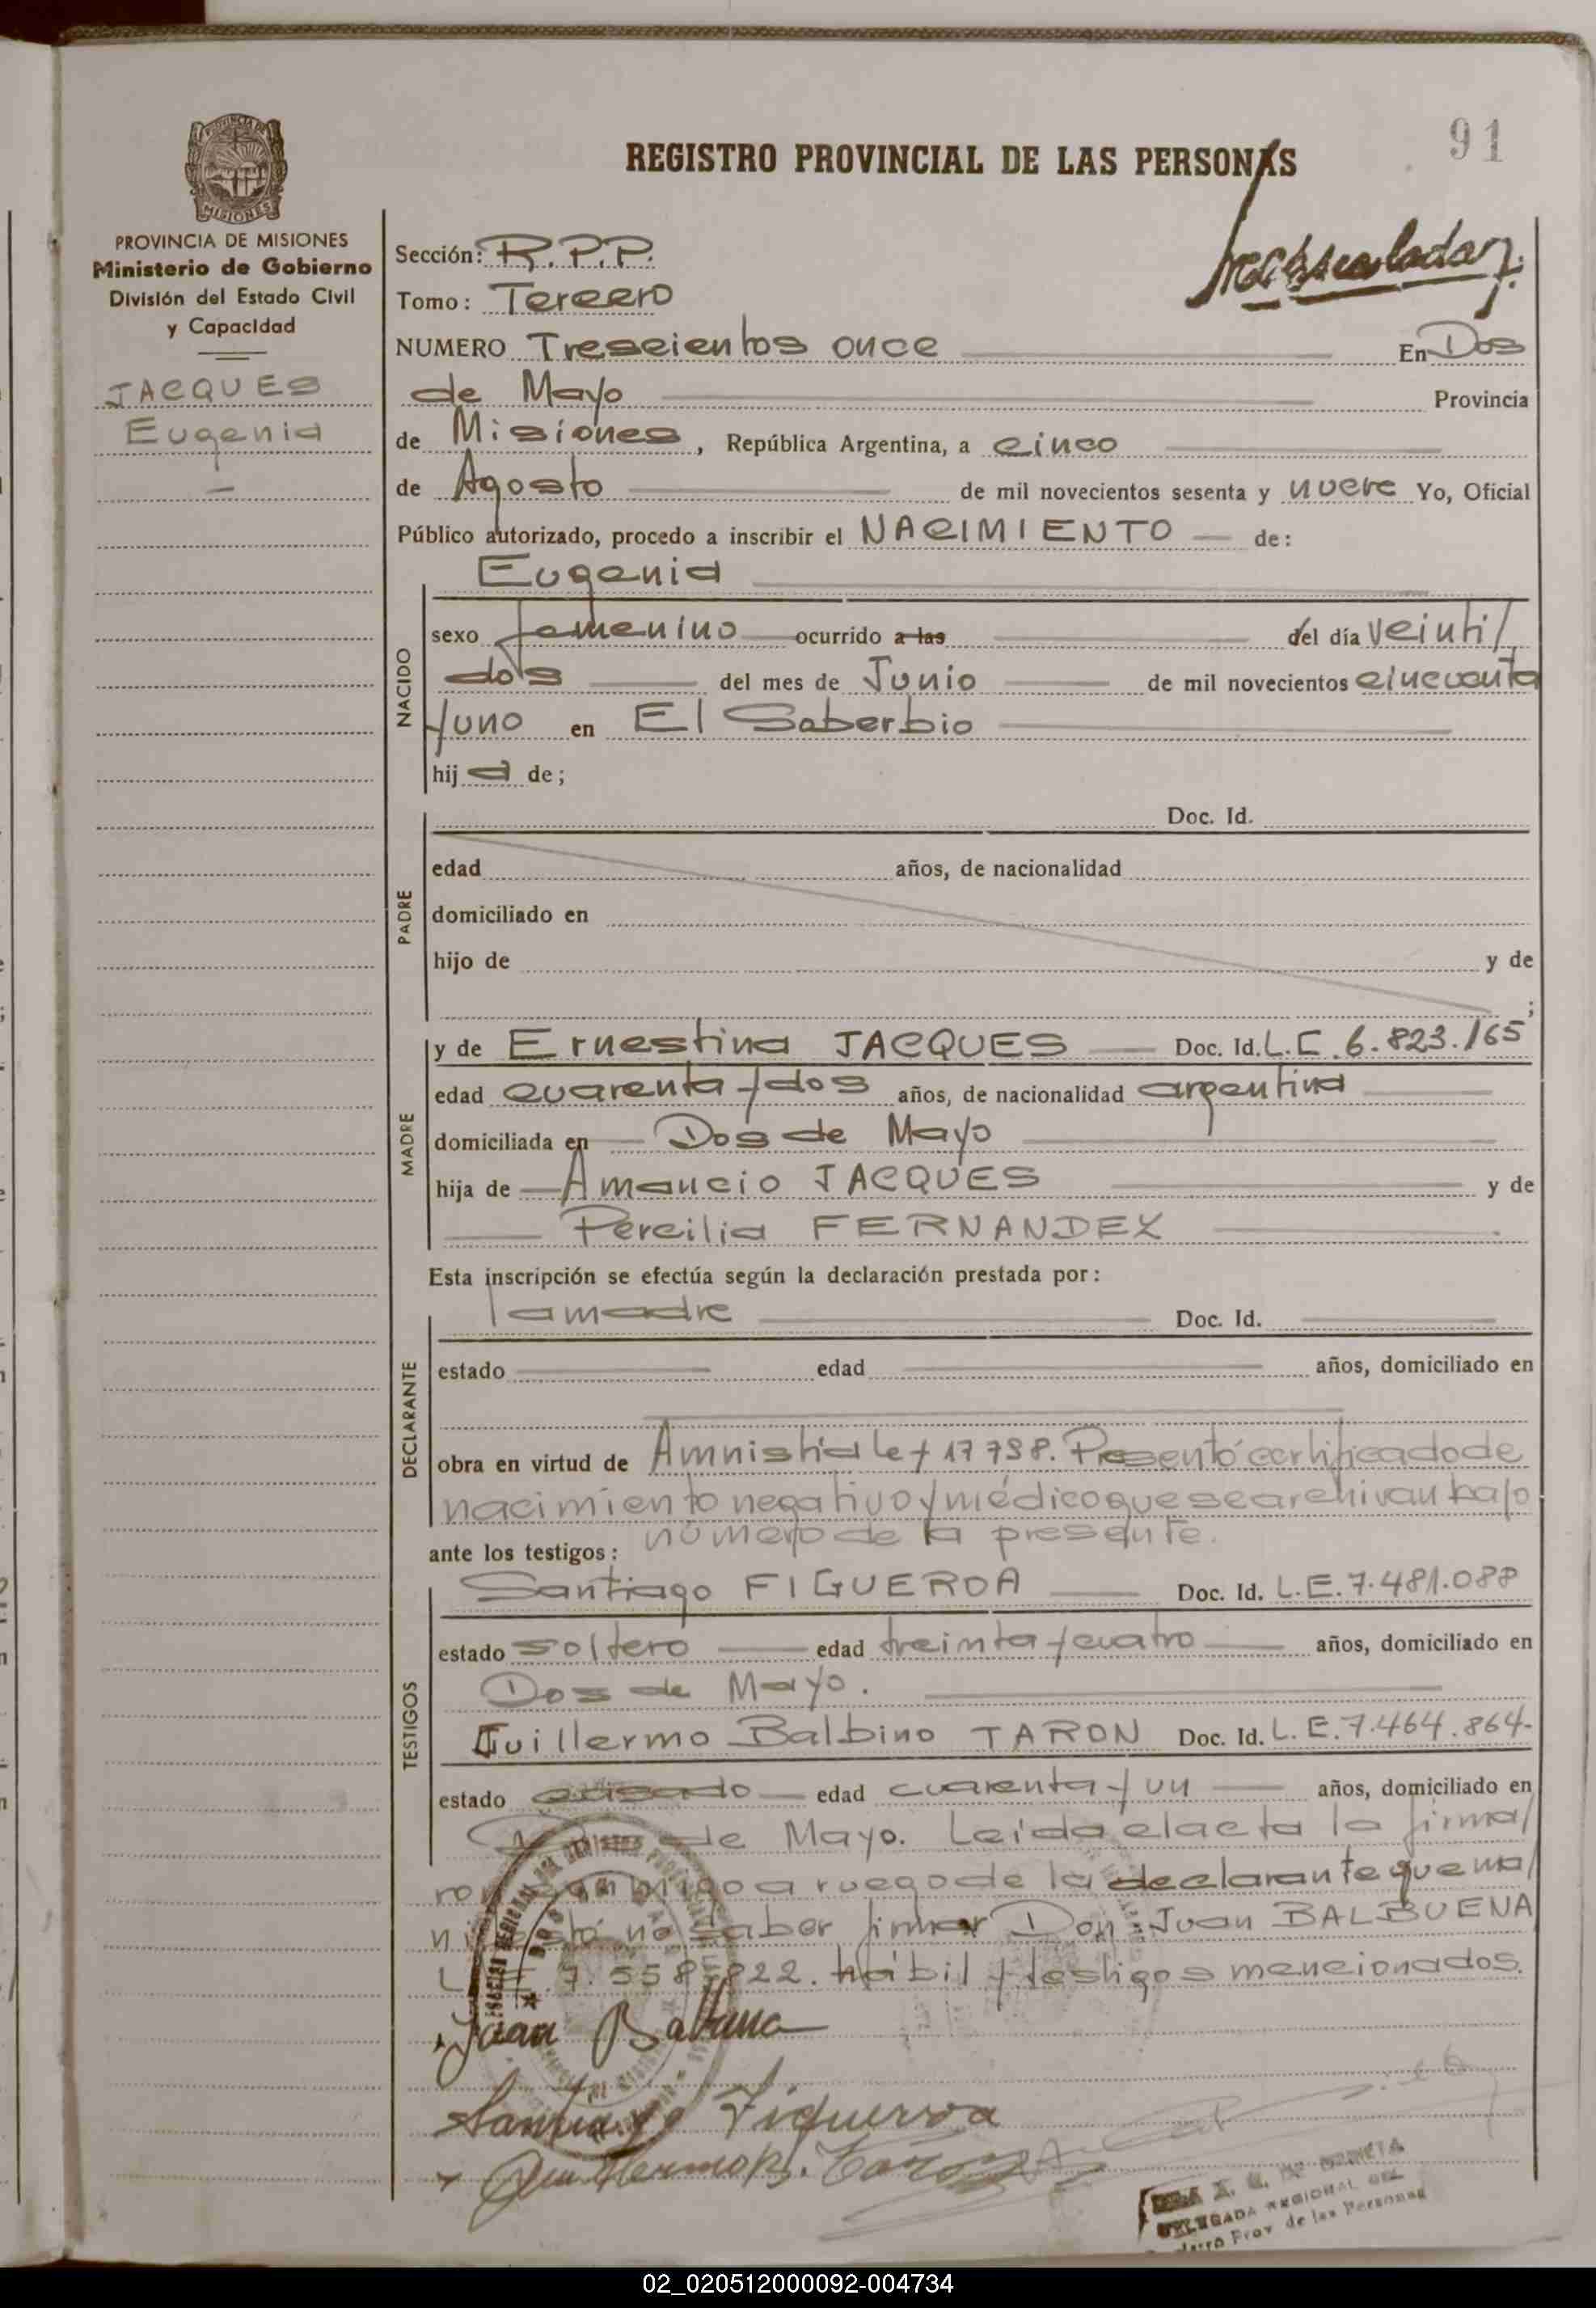 91
REGISTRO PROVINCIAL DE LAS PERSONAS
PROVINCIA DE MISIONES
Ministerio de Gobierno
División del Estado Civil
y Capacidad
JACQUES
Eugenia
Sección: R.P.P.
Tomo: Tercero
NUMERO Trescientos once En Dos
de Mayo Provincia
de Misiones, República Argentina, a cinco
de Agosto de mil novecientos sesenta y nueve Yo, Oficial
Público autorizado, procedo a inscribir el NACIMIENTO de:
Eugenia
NACIDO
sexo femenino ocurrido a las del día veinti/
dos del mes de Junio de mil novecientos cincuenta
y uno en El Soberbio
hija de;
PADRE
Doc. Id.
edad años, de nacionalidad
domiciliado en
hijo de y de
;
MADRE
y de Ernestina JACQUES Doc. Id. L.C. 6.823.165
edad cuarenta y dos años, de nacionalidad argentina
domiciliada en Dos de Mayo
hija de Amancio JACQUES y de
Percilia FERNANDEZ.
Esta inscripción se efectúa según la declaración prestada por:
la madre Doc. Id.
DECLARANTE
estado edad años, domiciliado en
obra en virtud de Amnistía Ley 17798. Presentó certificado de
nacimiento negativo y médico que se archivan bajo
número de la presente.
ante los testigos:
TESTIGOS
Santiago FIGUEROA Doc. Id. L.E. 7.481.088
estado soltero edad treinta y cuatro años, domiciliado en
Dos de Mayo.
Guillermo Balbino TARON Doc. Id. L.E. 7.464.864-
estado casado edad cuarenta y un años, domiciliado en
de Mayo. Leida el acta la firma/
ron conmigo a ruego de la declarante que ma/
nifestó no saber firmar Don Juan BALBUENA
L.E. 7.558.822. hábil y testigos mencionados.
Juan Balbuena
Santiago Figueroa
Guillermo B. Taron
DELEGADA REGIONAL DEL
Prov. de las Personas
02_020512000092-004734